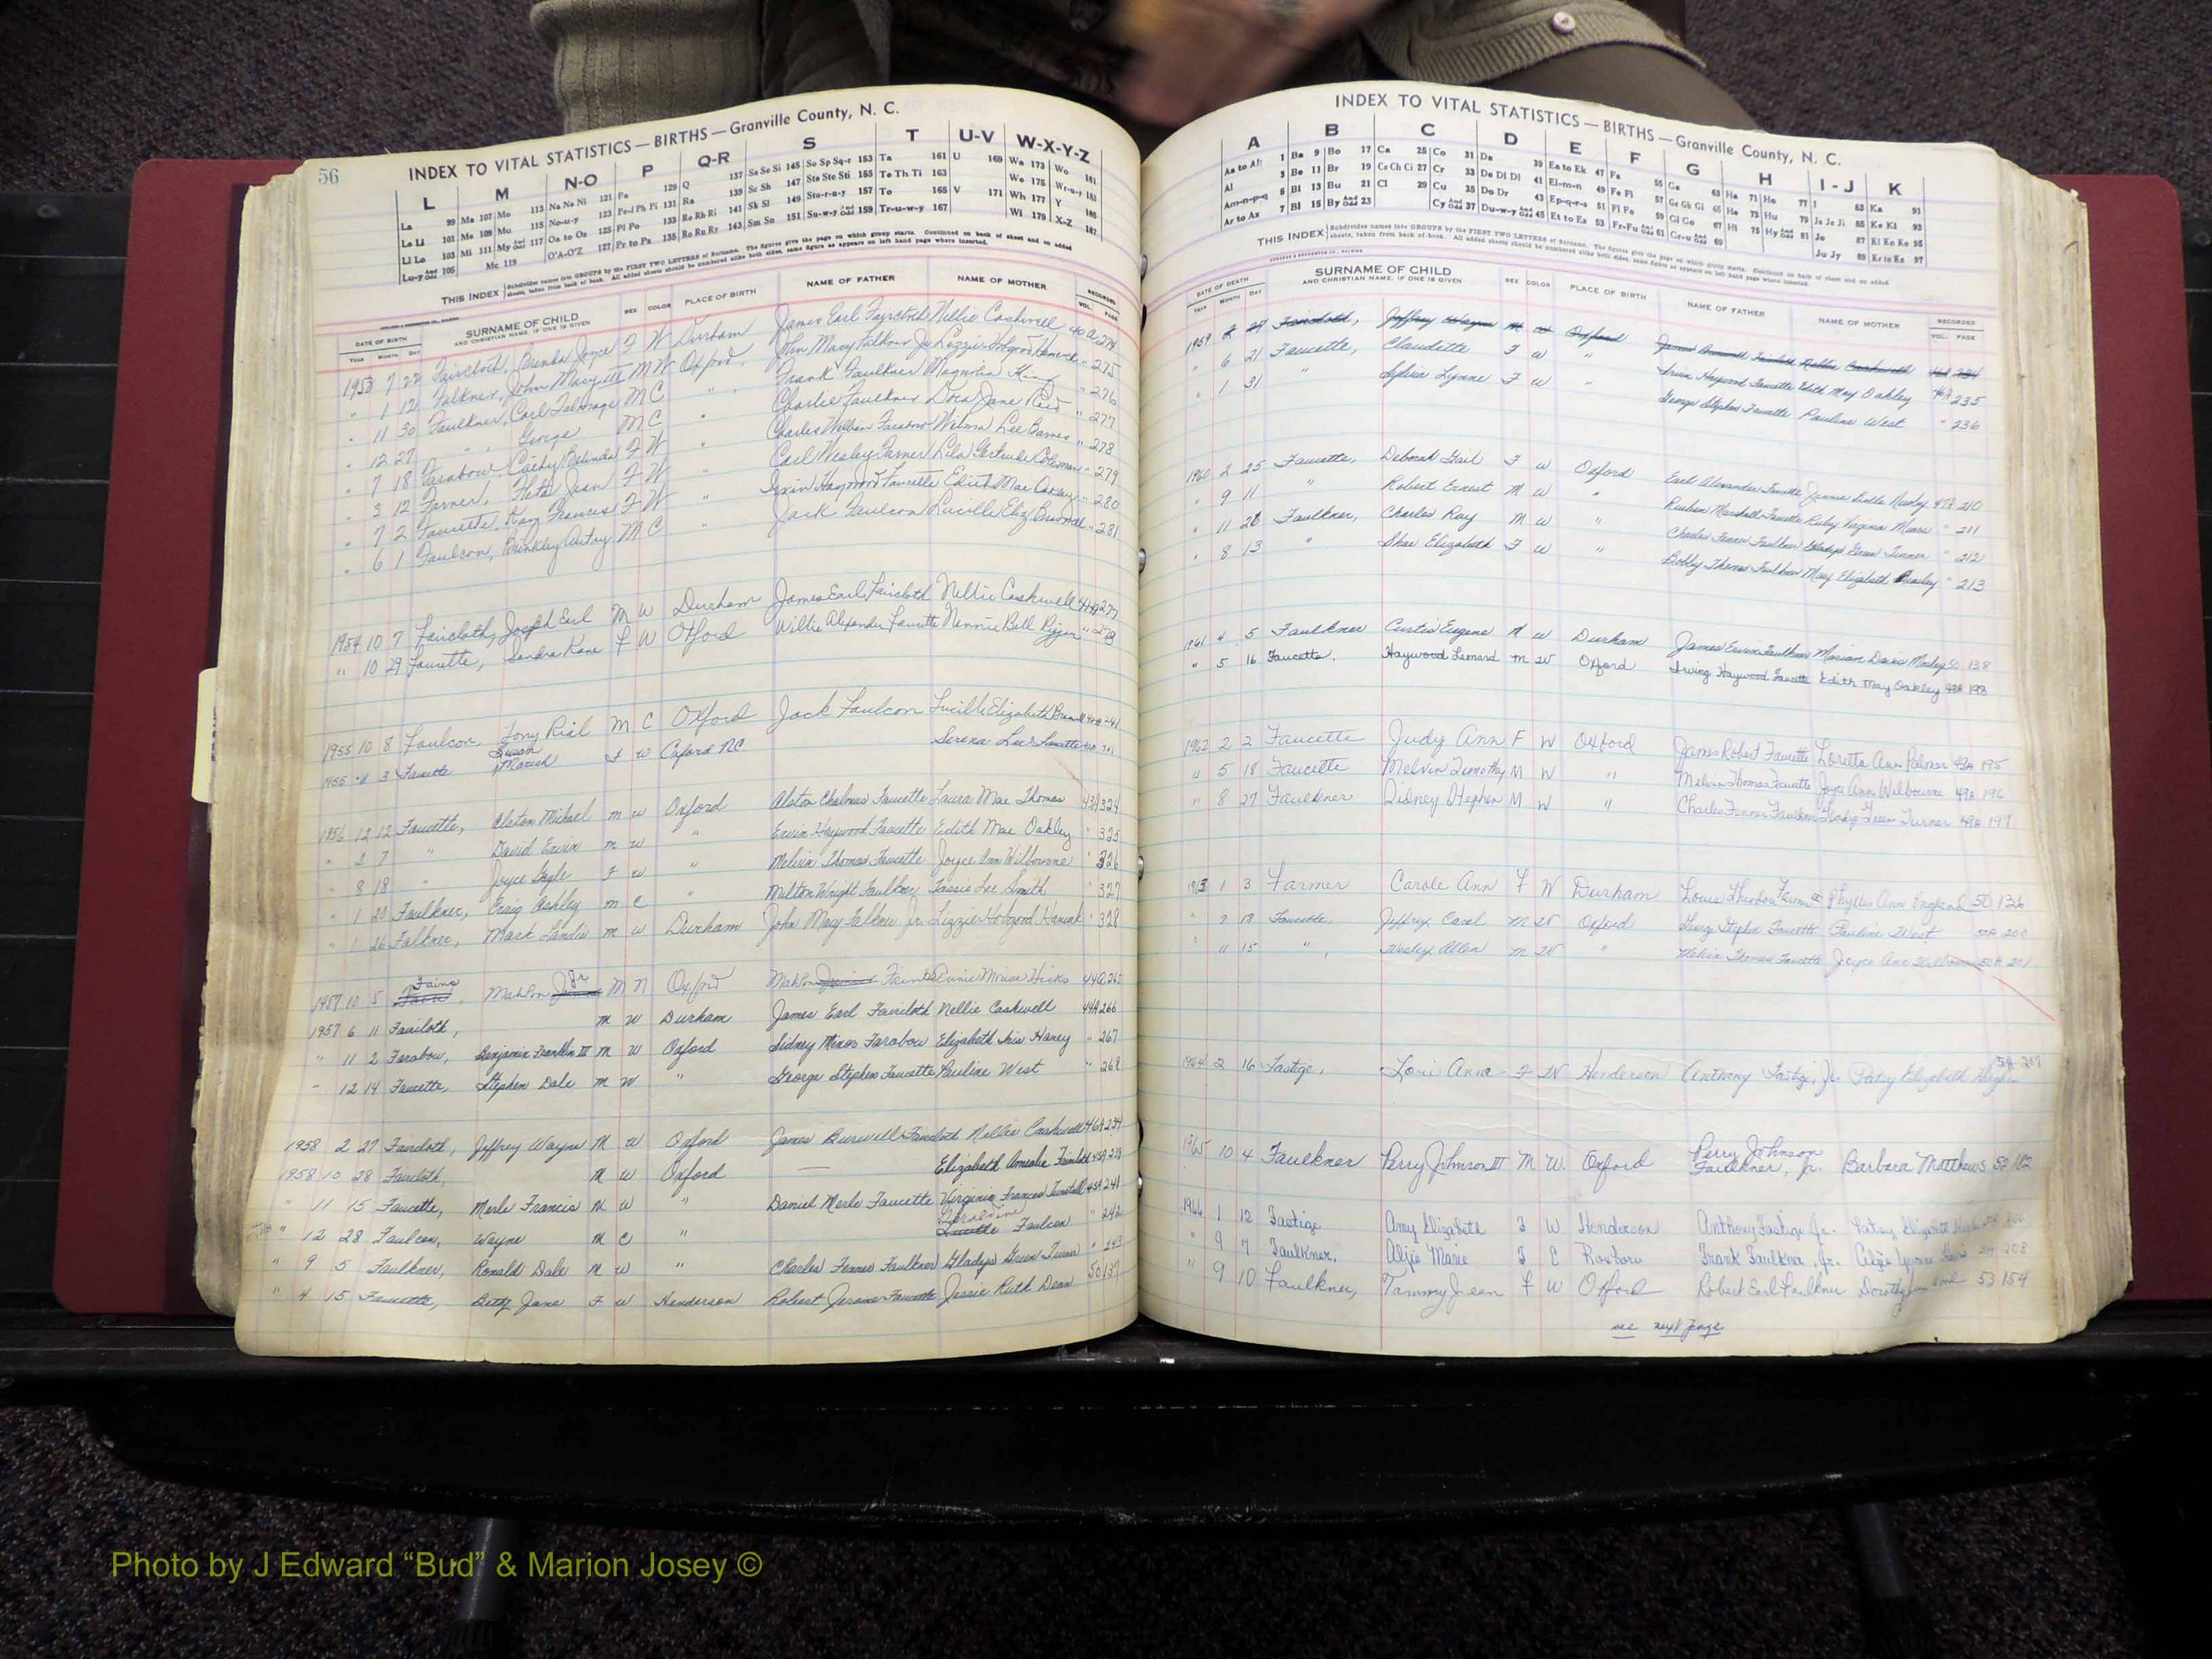 56
INDEX TO VITAL STATISTICS — BIRTHS — Granville County, N. C.
L M N-O P Q-R S T U-V W-X-Y-Z
La 99 Ma 107 Mo 113 Na Ne Ni 121 Pa 129 Q 137 Sa Se Si 145 So Sp Sq-r 153 Ta 161 U 169 Wa 173 Wo 181
Le Li 101 Me 109 Mu 115 No-u-y 123 Pe-f Ph Pi 131 Ra 139 Sc Sh 147 Sta Ste Sti 155 Te Th Ti 163 We 175 Wr-u-y 183
Ll Lo 103 Mi 111 My And Odd 117 Oa to Oz 125 Pl Po 133 Re Rh Ri 141 Sk Sl 149 Sto-r-u-y 157 To 165 V 171 Wh 177 Y 185
Lu-y And Odd 105 Mc 119 O'A-O'Z 127 Pr to Ps 135 Ro Ru Ry 143 Sm Sn 151 Su-w-y And Odd 159 Tr-u-w-y 167 Wi 179 X-Z 187
THIS INDEX Subdivides names into GROUPS by the FIRST TWO LETTERS of Surname. The figures give the page on which group starts. Continued on back of sheet and on added
sheets, taken from back of book. All added sheets should be numbered alike both sides, same figure as appears on left hand page where inserted.
DATE OF BIRTH SURNAME OF CHILD SEX COLOR PLACE OF BIRTH NAME OF FATHER NAME OF MOTHER RECORDED
YEAR MONTH DAY AND CHRISTIAN NAME, IF ONE IS GIVEN VOL. PAGE
1953 7 22 Faircloth, Brenda Joyce F W Durham James Earl Faircloth Nellie Cashwell 40A 274
" 1 12 Falkner, John Macy III M W Oxford John Macy Falkner Jr. Lizzie Hobgood Hancock " 275
" 11 30 Faulkner, Carl Talmage M C " Frank Faulkner Magnolia King " 276
" 12 27 " George M C " Charlie Faulkner Dora Jane Reid " 277
" 7 18 Farabow, Cathy Belinda F W " Charles William Farabow Wilma Lee Barnes " 278
" 3 12 Farmer, Fleta Jean F W " Carl Wesley Farmer Lila Gertrude Coleman " 279
" 7 2 Faucette, Kay Frances F W " Irvin Haywood Faucette Edith Mae Oakley " 280
" 6 1 Faulcon, Brinkley Autry M C " Jack Faulcon Lucille Eliz " 281
1954 10 7 Faircloth, Joseph Earl M W Durham James Earl Faircloth Nellie Cashwell 41A 277
" 10 29 Faucette, Sandra Kane F W Oxford Willie Alexander Faucette Nennie Bell " 278
1955 10 8 Faulcon, Tony Rial M C Oxford Jack Faulcon Lucille Elizabeth 241
1955 11 3 Faucette Susan Mariah F W Oxford NC Serena Lee Faucette
1956 12 12 Faucette, Alston Michael M W Oxford Alston Chalmus Faucette Laura Mae Thomas 43A 324
" 2 7 " David Ervin M W " Ervin Haywood Faucette Edith Mae Oakley " 325
" 8 18 " Joyce Gayle F W " Melvin Thomas Faucette Joyce Ann Wilbourne " 326
" 1 20 Faulkner, Craig Ashley M C " Milton Wright Faulkner Tassie Lee Smith " 327
" 1 26 Falkner, Mark Landis M W Durham John Macy Falkner Jr. Lizzie Hobgood Hancock " 328
1957 10 5 Faine Mahlon Jr M N Oxford Mahlon Junior Annie Mouise Hicks 44A 265
1957 6 11 Faircloth, M W Durham James Earl Faircloth Nellie Cashwell 44A 266
" 11 2 Farabow, Benjamin Franklin III M W Oxford Sidney Minor Farabow Elizabeth Iris Haney " 267
" 12 14 Faucette, Stephen Dale M W " George Stephen Faucette Pauline West " 268
1958 2 27 Faircloth, Jeffrey Wayne M W Oxford James Burwell Faircloth Nellie Cashwell 46A 234
1958 10 28 Faircloth, M W Oxford — Elizabeth Amealia Faircloth 45A 239
" 11 15 Faucette, Merle Francis M W " Daniel Merle Faucette Virginia Frances Tunstall 45A 241
" 12 28 Faulcon, Wayne M C " Geraldine Faulcon " 242
" 9 5 Faulkner, Ronald Dale M W " Charles Fenner Faulkner Gladys Green Turner " 243
" 4 15 Faucette, Betty Jane F W Henderson Robert Jerome Faucette Jessie Ruth Dean 50 137
INDEX TO VITAL STATISTICS — BIRTHS — Granville County, N. C.
A B C D E F G H I-J K
Aa to Ah 1 Ba 9 Bo 17 Ca 25 Co 31 Da 39 Ea to Ek 47 Fa 55 Ga 63 Ha 71 Ho 77 I 83 Ka 91
Al 3 Be 11 Br 19 Ce Ch Ci 27 Cr 33 De Di Dl 41 El-m-n 49 Fe Fi 57 Ge Gh Gi 65 He 73 Hu 79 Ja Je Ji 85 Ke Kl 93
Am-n-p-q 5 Bi 13 Bu 21 Cl 29 Cu 35 Do Dr 43 Ep-q-r-s 51 Fl Fo 59 Gl Go 67 Hi 75 Hy And Odd 81 Jo 87 Ki Kn Ko 95
Ar to Az 7 Bl 15 By And Odd 23 Cy And Odd 37 Du-w-y And Odd 45 Et to Ez 53 Fr-Fu And Odd 61 Gr-u And Odd 69 Ju Jy 89 Kr to Kz 97
THIS INDEX Subdivides names into GROUPS by the FIRST TWO LETTERS of Surname. The figures give the page on which group starts. Continued on back of sheet and on added
sheets, taken from back of book. All added sheets should be numbered alike both sides, same figure as appears on left hand page where inserted.
DATE OF DEATH SURNAME OF CHILD SEX COLOR PLACE OF BIRTH NAME OF FATHER NAME OF MOTHER RECORDED
YEAR MONTH DAY AND CHRISTIAN NAME, IF ONE IS GIVEN VOL. PAGE
1959 2 27 Faircloth, Jeffrey Wayne M W Oxford James Burwell Faircloth Nellie Cashwell 46A 234
" 6 21 Faucette, Claudette F W " Irvin Haywood Faucette Edith May Oakley 46A 235
" 1 31 " Sylvia Lynne F W " George Stephen Faucette Pauline West " 236
1960 2 25 Faucette, Deborah Gail F W Oxford Earl Alexander Faucette Jennie Belle 47A 210
" 9 11 " Robert Ernest M W " Reuben Marshall Faucette Ruby Virginia " 211
" 11 20 Faulkner, Charles Ray M W " Charles Fenner Faulkner Gladys Green Turner " 212
" 8 13 " Shae Elizabeth F W " Bobby Thomas Faulkner Mary Elizabeth " 213
1961 4 5 Faulkner Curtis Eugene M W Durham James Ervin Faulkner Marian Davis Mosley 50 138
" 5 16 Faucette, Haywood Leonard M W Oxford Irving Haywood Faucette Edith May Oakley 48A 193
1962 2 2 Faucette Judy Ann F W Oxford James Robert Faucette Loretta Ann Palmer 49A 195
" 5 18 Faucette Melvin Timothy M W " Melvin Thomas Faucette Joyce Ann Wilbourne 49A 196
" 8 27 Faulkner Sidney Stephen M W " Charles Fenner Faulkner Gladys Green Turner 49A 197
1963 1 3 Farmer Carole Ann F W Durham Louis Farmer Phyllis Ann England 50 136
" 9 18 Faucette, Jeffrey Carol M W Oxford George Stephen Faucette Pauline West 50A 200
" 11 15 " Wesley Allen M W " Melvin Thomas Faucette Joyce Ann Wilbourne 50A 201
1964 2 16 Fastige, Lori Anna F W Henderson (Anthony Fastige, Jr. Patsy Elizabeth 51A 207
1965 10 4 Faulkner Perry Johnson III M W. Oxford Perry Johnson Faulkner, Jr. Barbara Matthews 52 182
1966 1 12 Fastige Amy Elizabeth F W Henderson Anthony Fastige Jr. Patsy Elizabeth
" 9 7 Faulkner, Alfie Marie F C Roxboro Frank Faulkner, Jr. 208
" 9 10 Faulkner, Tammy Jean F W Oxford Robert Earl Faulkner Dorothy 53 154
see next page
Photo by J Edward “Bud” & Marion Josey ©